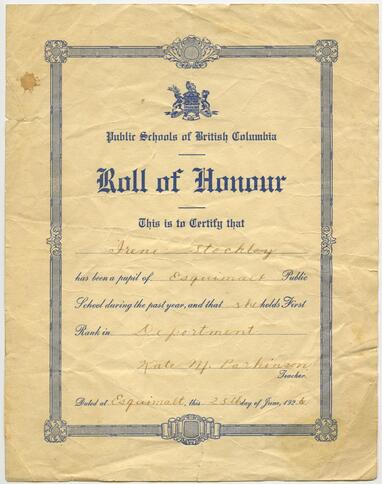 Public Schools of British Columbia
Roll of Honour
This is to Certify that
Irene Stockley
has been a pupil of Esquimalt Public
School during the past year, and that she holds First
Rank in Deportment
Kate M. Parkinson
Teacher.
Dated at Esquimalt, this 25th day of June, 1926